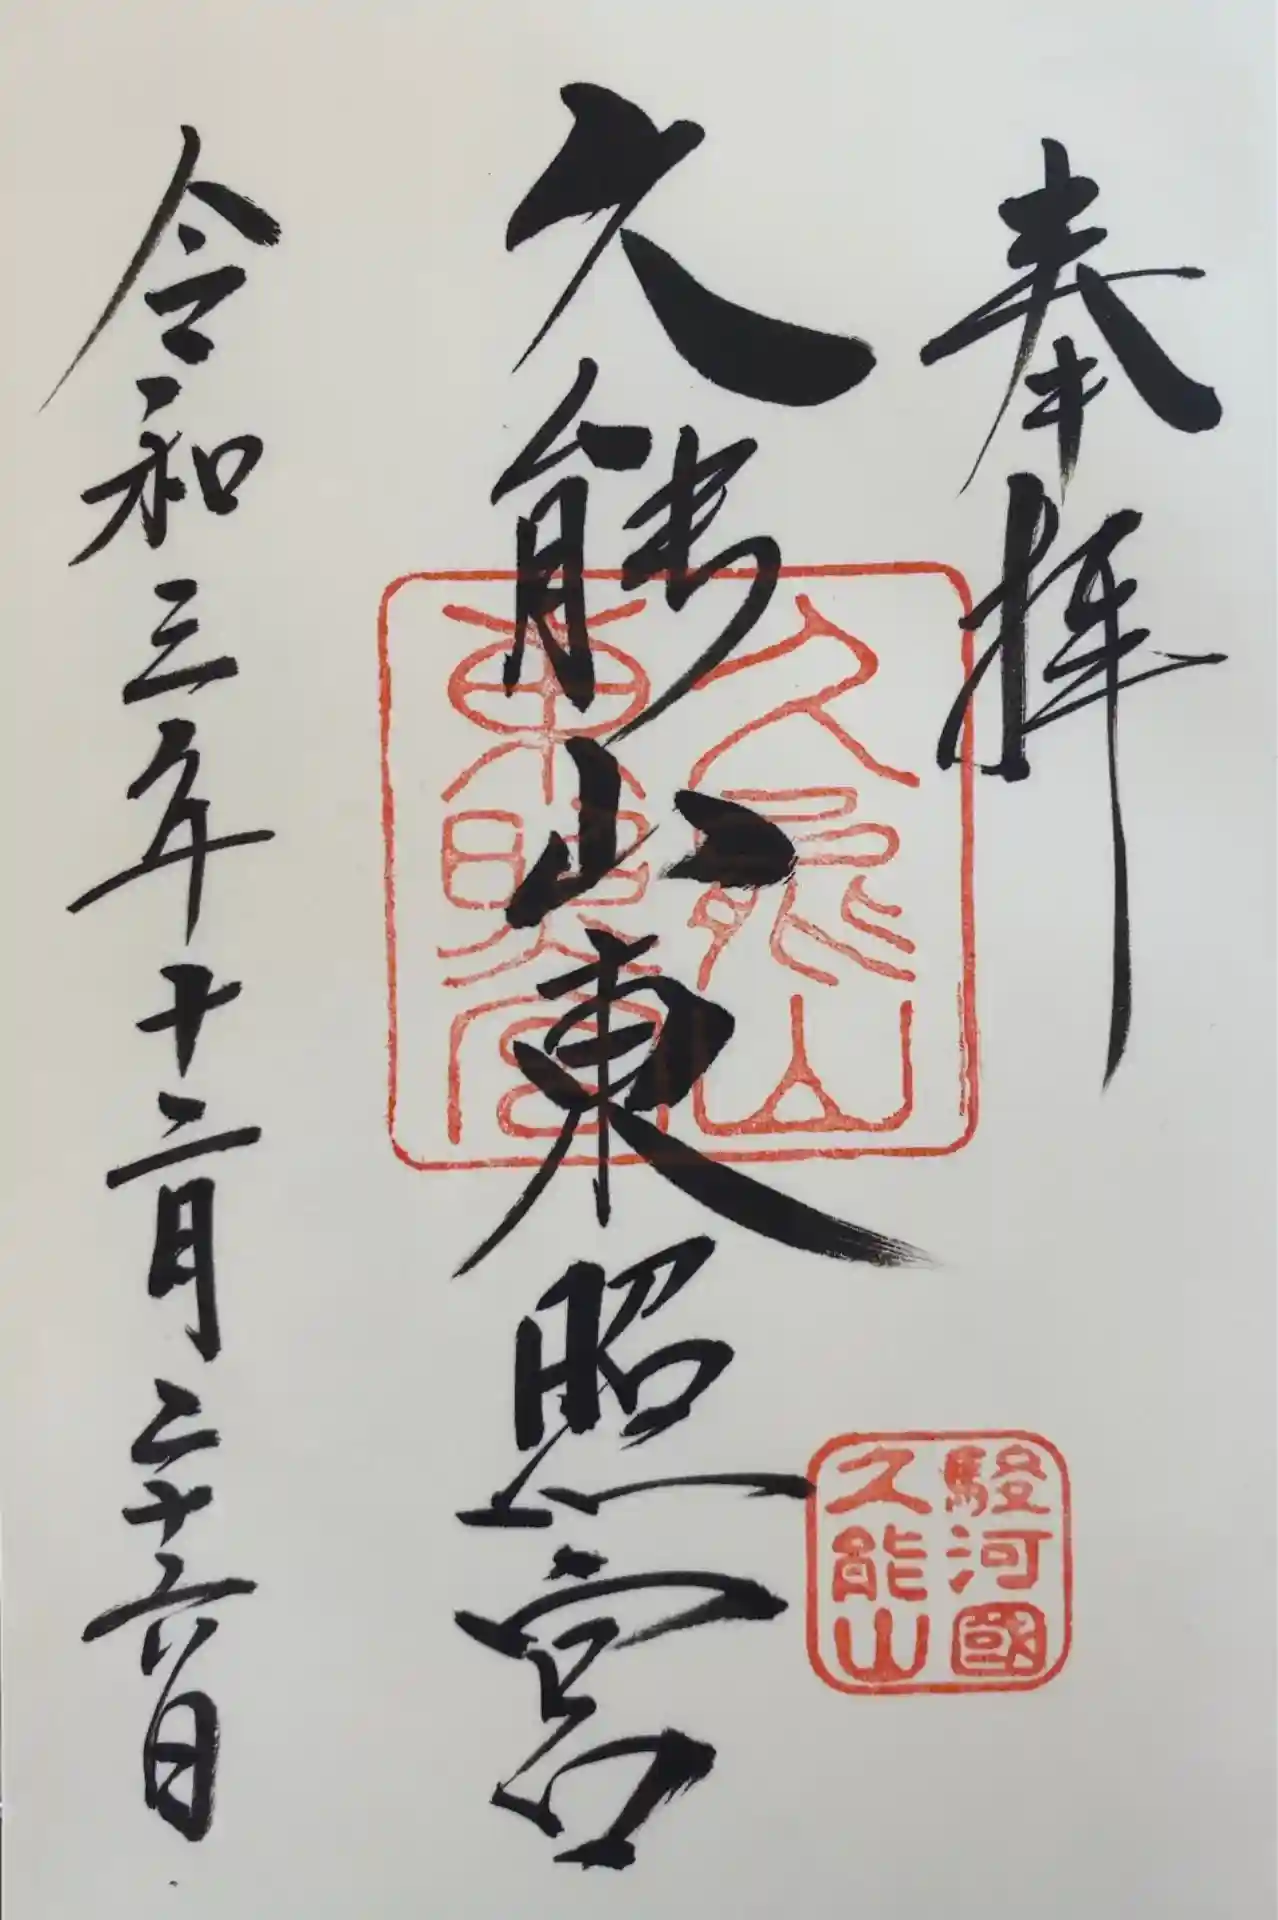 奉拝
久能山東照宮
久能山
東照宮
駿河國
久能山
令和三年十二月二十六日